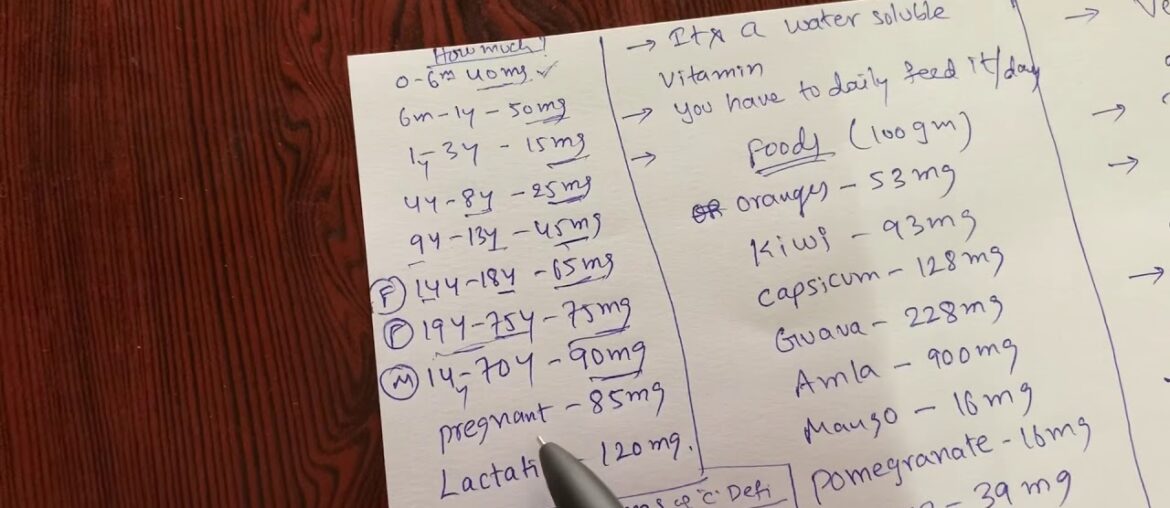 How much?
0-6m 40mg ✓
6m-1y - 50mg
1y-3y - 15mg
4y-8y - 25mg
9y-13y - 45mg
F 14y-18y - 65mg
F 19y-75y - 75mg
M 14y-70y - 90mg
pregnant - 85mg
Lactati - 120mg.
→ Its a water soluble
vitamin
→ you have to daily feed it/day
→ Foods (100gm)
oranges - 53mg
Kiwi - 93mg
Capsicum - 128mg
Gwava - 228mg
Amla - 900mg
Mango - 16mg
Pomegranate - 16mg
- 39mg
"C" Defi
→
→
→
→